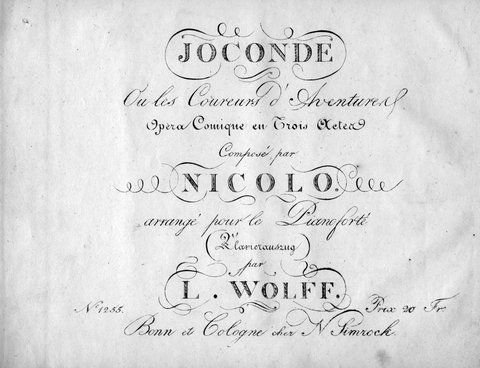 JOCONDE
Ou les Coureurs d'Aventures
Opera Comique en Trois Actes
Composé par
NICOLO.
arrangé pour le Pianoforté
(Klavierauszug)
par
L. WOLFF.
No. 1255. Prix 20 Fr.
Bonn et Cologne chez N. Simrock.